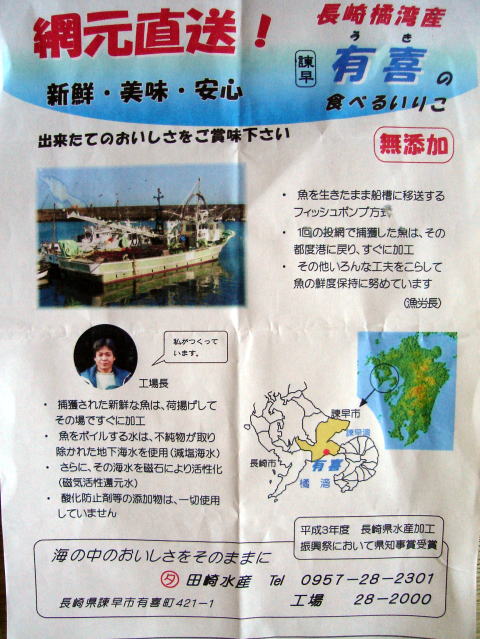 網元直送！
新鮮・美味・安心
長崎橘湾産
うき
諫早
有喜の
食べるいりこ
出来たてのおいしさをご賞味下さい
無添加
・ 魚を生きたまま船槽に移送する
フィッシュポンプ方式
・ 1回の投網で捕獲した魚は、その
都度港に戻り、すぐに加工
・ その他いろんな工夫をこらして
魚の鮮度保持に努めています
(漁労長)
私がつくって
います。
工場長
・ 捕獲された新鮮な魚は、荷揚げして
その場ですぐに加工
・ 魚をボイルする水は、不純物が取り
除かれた地下海水を使用(減塩海水)
・ さらに、その海水を磁石により活性化
(磁気活性還元水)
・ 酸化防止剤等の添加物は、一切使用
していません
諫早市
諫早湾
長崎市
有喜
橘湾
平成3年度 長崎県水産加工
振興祭において県知事賞受賞
海の中のおいしさをそのままに
タ 田崎水産 Tel 0957-28-2301
長崎県諫早市有喜町421-1 工場 28-2000